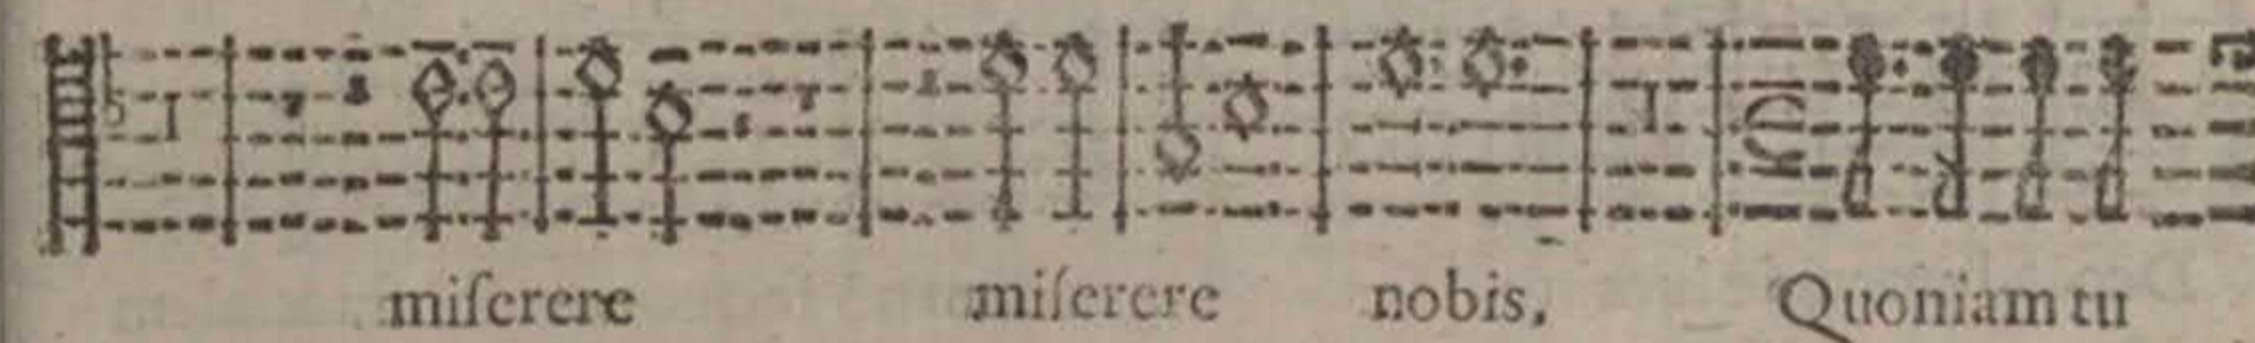 miſerere miſerere nobis. Quoniam tu